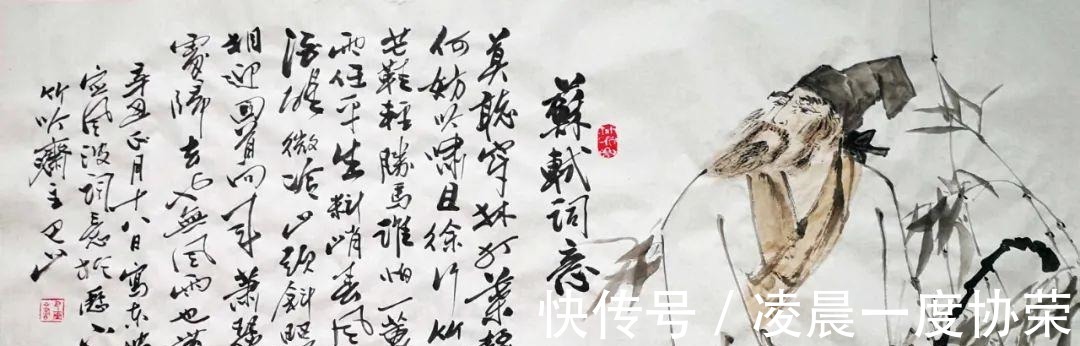 蘇軾詞意
莫聽穿林打葉聲
何妨吟嘯且徐行竹
芒鞋輕勝馬誰怕一蓑
雨任平生料峭春風
酒醒微冷山頭斜照
相迎回首向來蕭瑟
處歸去也無風雨也無
辛丑正月十八日寫東坡
定風波詞意於歷下
竹吟齋主巴山
快传号 / 凌晨一度协荣